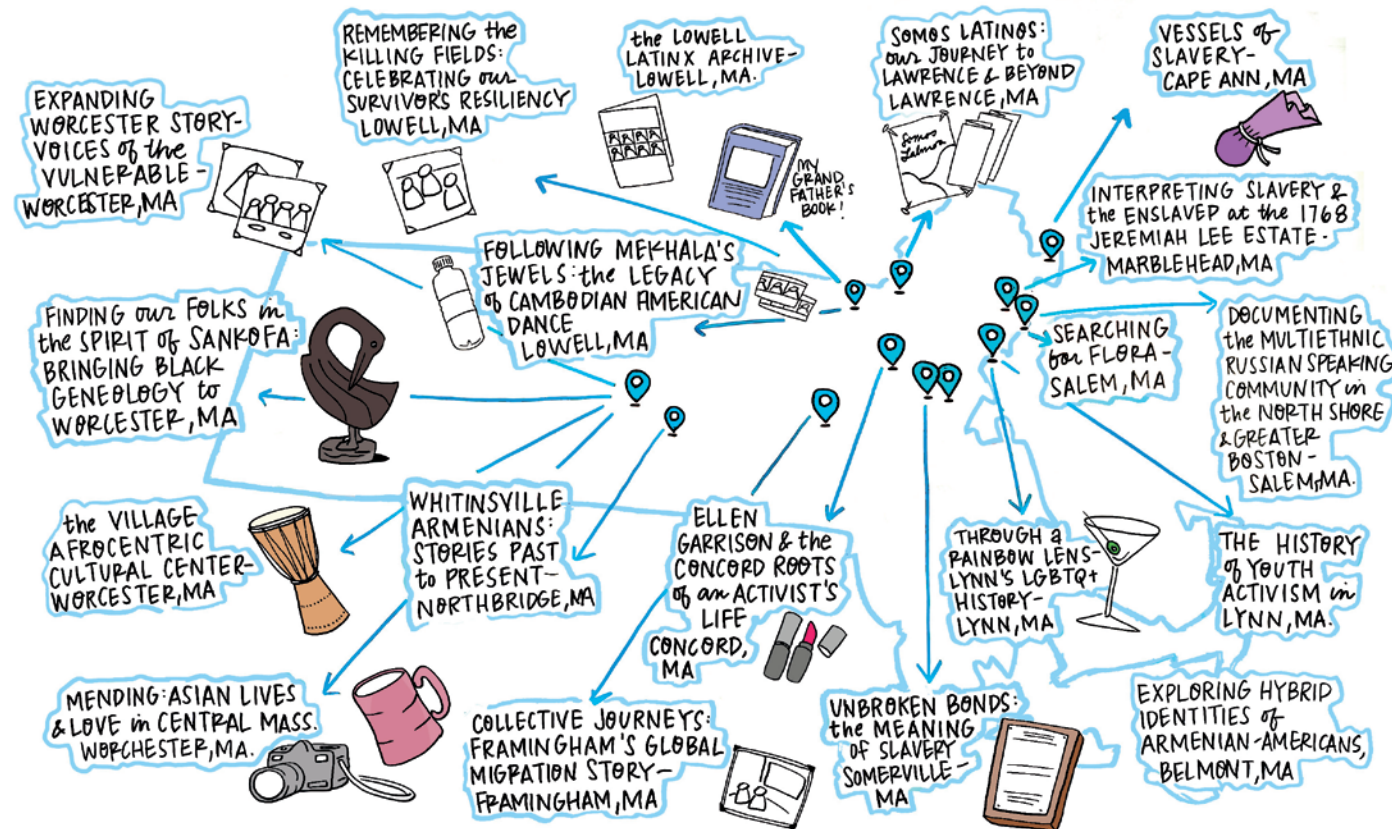 EXPANDING
WORCESTER STORY-
VOICES of the
VULNERABLE -
WORCESTER, MA
REMEMBERING the
KILLING FIELDS:
CELEBRATING our
SURVIVOR'S RESILIENCY
LOWELL, MA
the LOWELL
LATINX ARCHIVE-
LOWELL, MA.
MY
GRAND
FATHER'S
BOOK!
SOMOS LATINOS:
our JOURNEY to
LAWRENCE & BEYOND
LAWRENCE, MA
Somos
Latinos
VESSELS of
SLAVERY-
CAPE ANN, MA
INTERPRETING SLAVERY &
the ENSLAVED at the 1768
JEREMIAH LEE ESTATE -
MARBLEHEAD, MA
FOLLOWING MEKHALA'S
JEWELS: the LEGACY
of CAMBODIAN AMERICAN
DANCE
LOWELL, MA
FINDING our FOLKS in
the SPIRIT of SANKOFA:
BRINGING BLACK
GENEOLOGY to
WORCESTER, MA
SEARCHING
for FLORA-
SALEM, MA
DOCUMENTING
the MULTIETHNIC
RUSSIAN SPEAKING
COMMUNITY in
the NORTH SHORE
& GREATER
BOSTON-
SALEM, MA.
the VILLAGE
AFROCENTRIC
CULTURAL CENTER-
WORCESTER, MA
WHITINSVILLE
ARMENIANS:
STORIES PAST
to PRESENT-
NORTHBRIDGE, MA
ELLEN
GARRISON & the
CONCORD ROOTS
of an ACTIVIST'S
LIFE
CONCORD,
MA
THROUGH a
RAINBOW LENS-
LYNN'S LGBTQ+
HISTORY-
LYNN, MA
THE HISTORY
of YOUTH
ACTIVISM in
LYNN, MA.
MENDING: ASIAN LIVES
& LOVE in CENTRAL MASS.
WORCHESTER, MA.
COLLECTIVE JOURNEYS:
FRAMINGHAM'S GLOBAL
MIGRATION STORY-
FRAMINGHAM, MA
UNBROKEN BONDS:
the MEANING
OF SLAVERY
SOMERVILLE-
MA
EXPLORING HYBRID
IDENTITIES of
ARMENIAN-AMERICANS,
BELMONT, MA